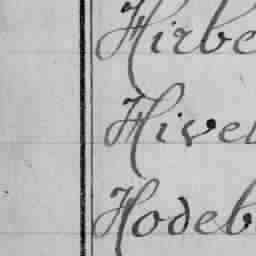 Hirbe
Hive
Hodeb